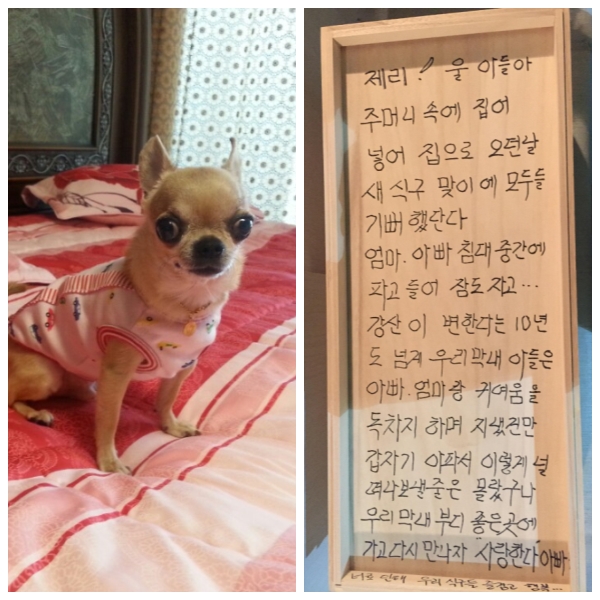 제리! 울 아들아
주머니 속에 집어
넣어 집으로 오던날
새 식구 맞이에 모두들
기뻐 했단다
엄마. 아빠 침대 중간에
파고 들어 잠도 자고...
강산이 변한다는 10년
도 넘게 우리막내 아들은
아빠. 엄마랑 귀여움을
독차지 하며 지냈건만
갑자기 아파서 이렇게 널
떠나보낼줄은 몰랐구나
우리 막내 부디 좋은곳에
가고 다시 만나자 "사랑한다" 아빠
너로 인해 우리 식구는 즐겁고 행복...